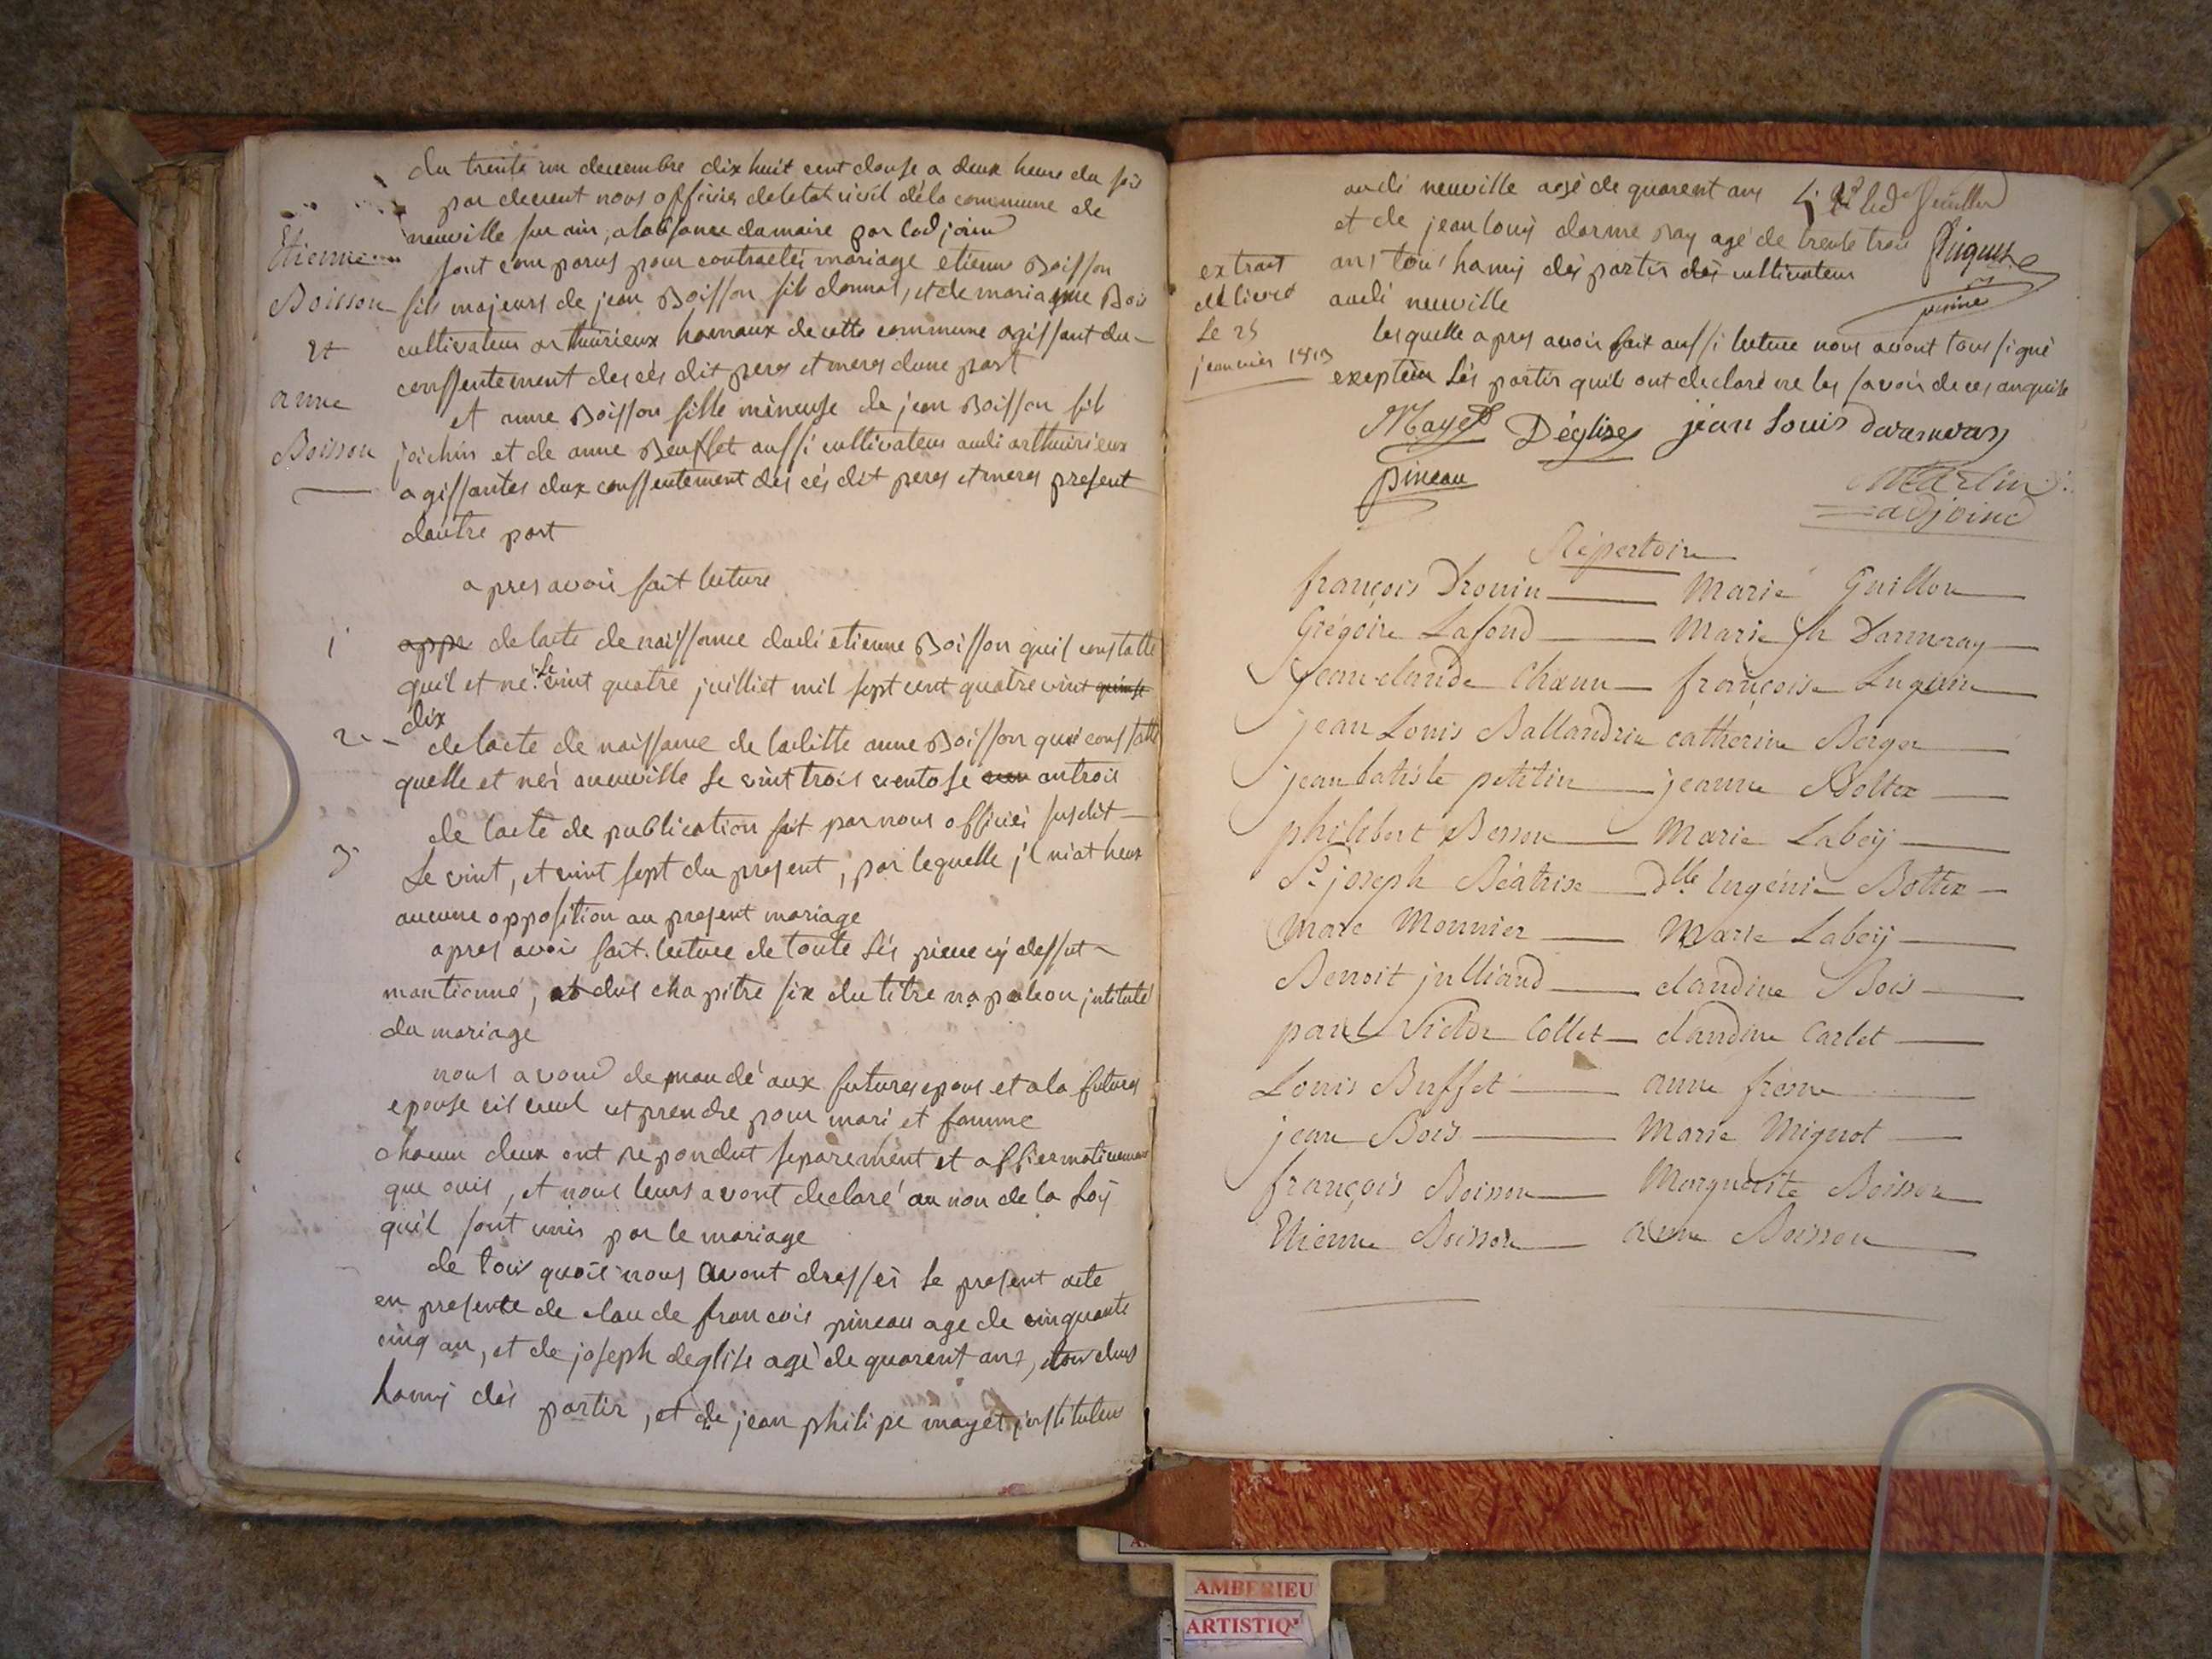 du trente un decembre dix huit cent douse a deux heure du soir
par devent nous officier de letat civil dela commune de
neuville sur ain, alabsance du maire par ladjoind
Etienne
Boisson
et
anne
Boisson
sont comparus pour contracter mariage etienne Boisson
fils majeurs de jean Boisson fils donnat, et de mariaque Bois
cultivateur arthuirieux hamaux de cette commune agissant du
conssentement des cés dit peres et meres dune part
et anne Boisson fille mineuse de jean Boisson fils
joichin et de anne Beuffet aussi cultivateur audi arthuirieux
agissantes dux conssentement des cés dit peres et meres present
dautre part
apres avoir fait lecture
1 appr de lacte de naissance dudi etienne Boisson qui constatte
quil et né le vint quatre juilliet mil sept cent quatre vint quinse
dix
2 de lacte de naissance de laditte anne Boisson qui constatte
quelle et néé aneuville le vint trois ventose an trois
3 de lacte de publication fait par nous officiéi susdit
Le vint, et vint sept du present, par lequelle jl niat heux
aucune opposition au present mariage
apres avoir fait lecture de toute lés piecce cy dessut
mantionné, et dus chapitre six du titre napoleon jntitulé
du mariage
nous avond demandé aux futures epous et ala futures
epouse cil veul ut prendre pour mari et famme
chacun deux ont repondut séparement et affiermativemant
que ouis, et nous leurs avont declaré au non de la Loÿ
quil sont unis par le mariage
de tous quois nous avont dressés le present acte
en presente de claude francois pineau age de cinquante
cinq an, et de joseph deglise agé de quarent ans, tous deus
hamis dés partir, et de jean philipe mayet jnstituteur
audi neuville agé de quarent ans
et de jean louis darme ray agé de trente trois
ans tous hamis dés partis dés cultivateur
audi neuville
extrait
délivré
Le 25
jeanvier 1813
lesquelle apres avoir fait aussi lecture nous avont tous signé
exeptéen Lés partir quils ont declaré ne les savoir de ces anquise
Mayet Déglise jean Louis darmeray
pineau
Martin
adjoind
Répertoire
françois Drouin Marie Guillon
Grégoire Lafond Marie jh Darmeray
jean-claude Chanu françoise Luguin
jean Louis Ballandrin catherine Berger
jean batiste petitin jeanne Bottex
philibert Besson Marie Labeÿ
Sr joseph Béatrix dlle Eugénie Bottex
Marc Monnier Marie Labeÿ
Benoit julliand claudine Bois
paul Victor Collet claudine Carlet
Louis Buffet anne fresne
jean Bois Marie Mignot
françois Boisson Margueritte Boisson
Etienne Boisson anne Boisson
AMBERIEU
ARTISTIQ